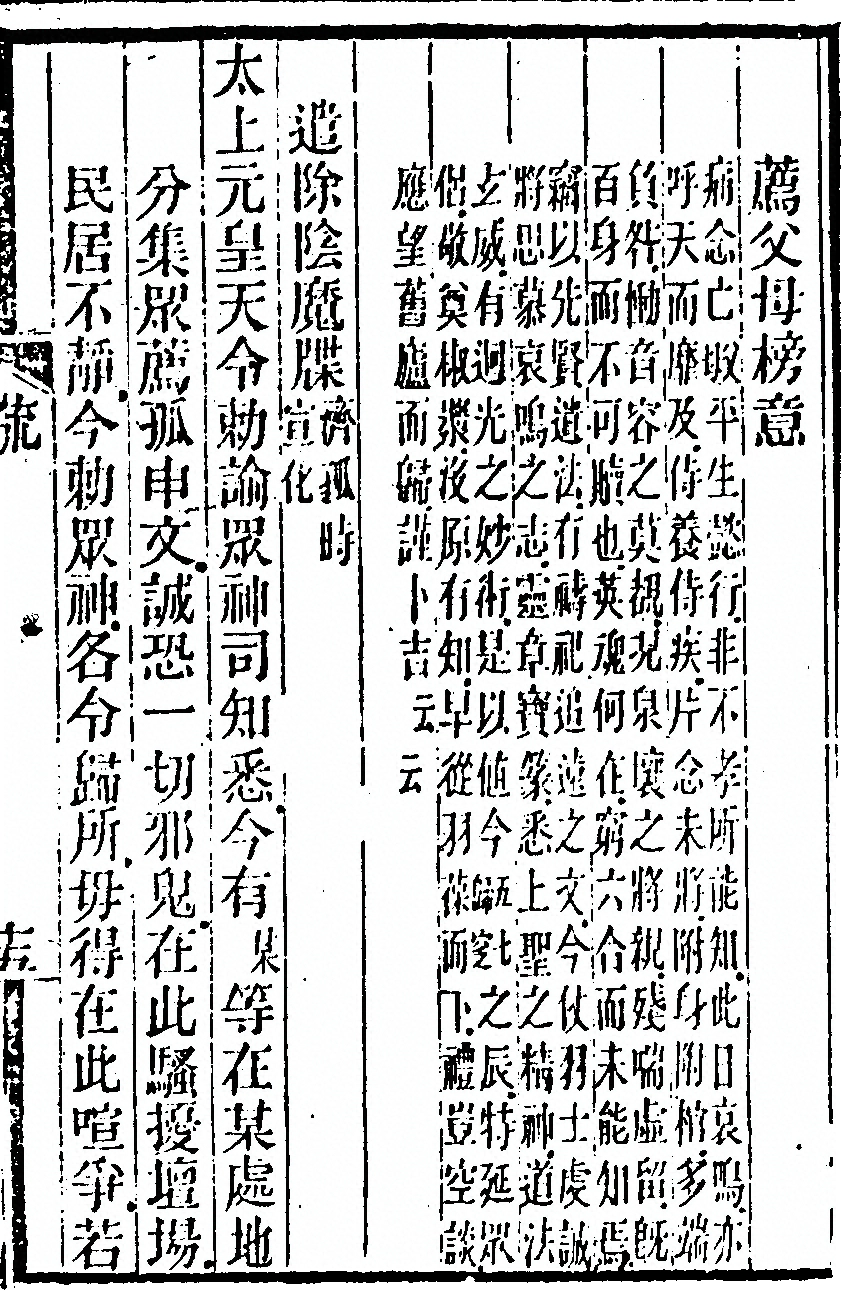 薦父母榜意
痛念亡故平生懿行非不孝所能知此日哀鳴亦
呼天而靡及侍養侍疾片念未將附身附棺多端
負咎慟音容之莫覩況泉壤之將親殘喘虛留旣
百身而不可贖也英魂何在窮六合而未能知焉
竊以先賢道法有禱祀追遠之文今仗羽士虔誠
將思慕哀鳴之志靈章寶篆悉上聖之精神道法
玄威有迥光之妙術是以値今歸五七之辰特延眾
侶敬奠椒漿沒原有知早從羽葆而下禮豈空談
應望舊廬而歸謹卜吉云云
遣除陰魔牒濟孤時宣化
太上元皇天令勅諭眾神司知悉今有某等在某處地
分集眾薦孤申文誠恐一切邪鬼在此騷擾壇場
民居不靜今勅眾神各令歸所毋得在此喧爭若